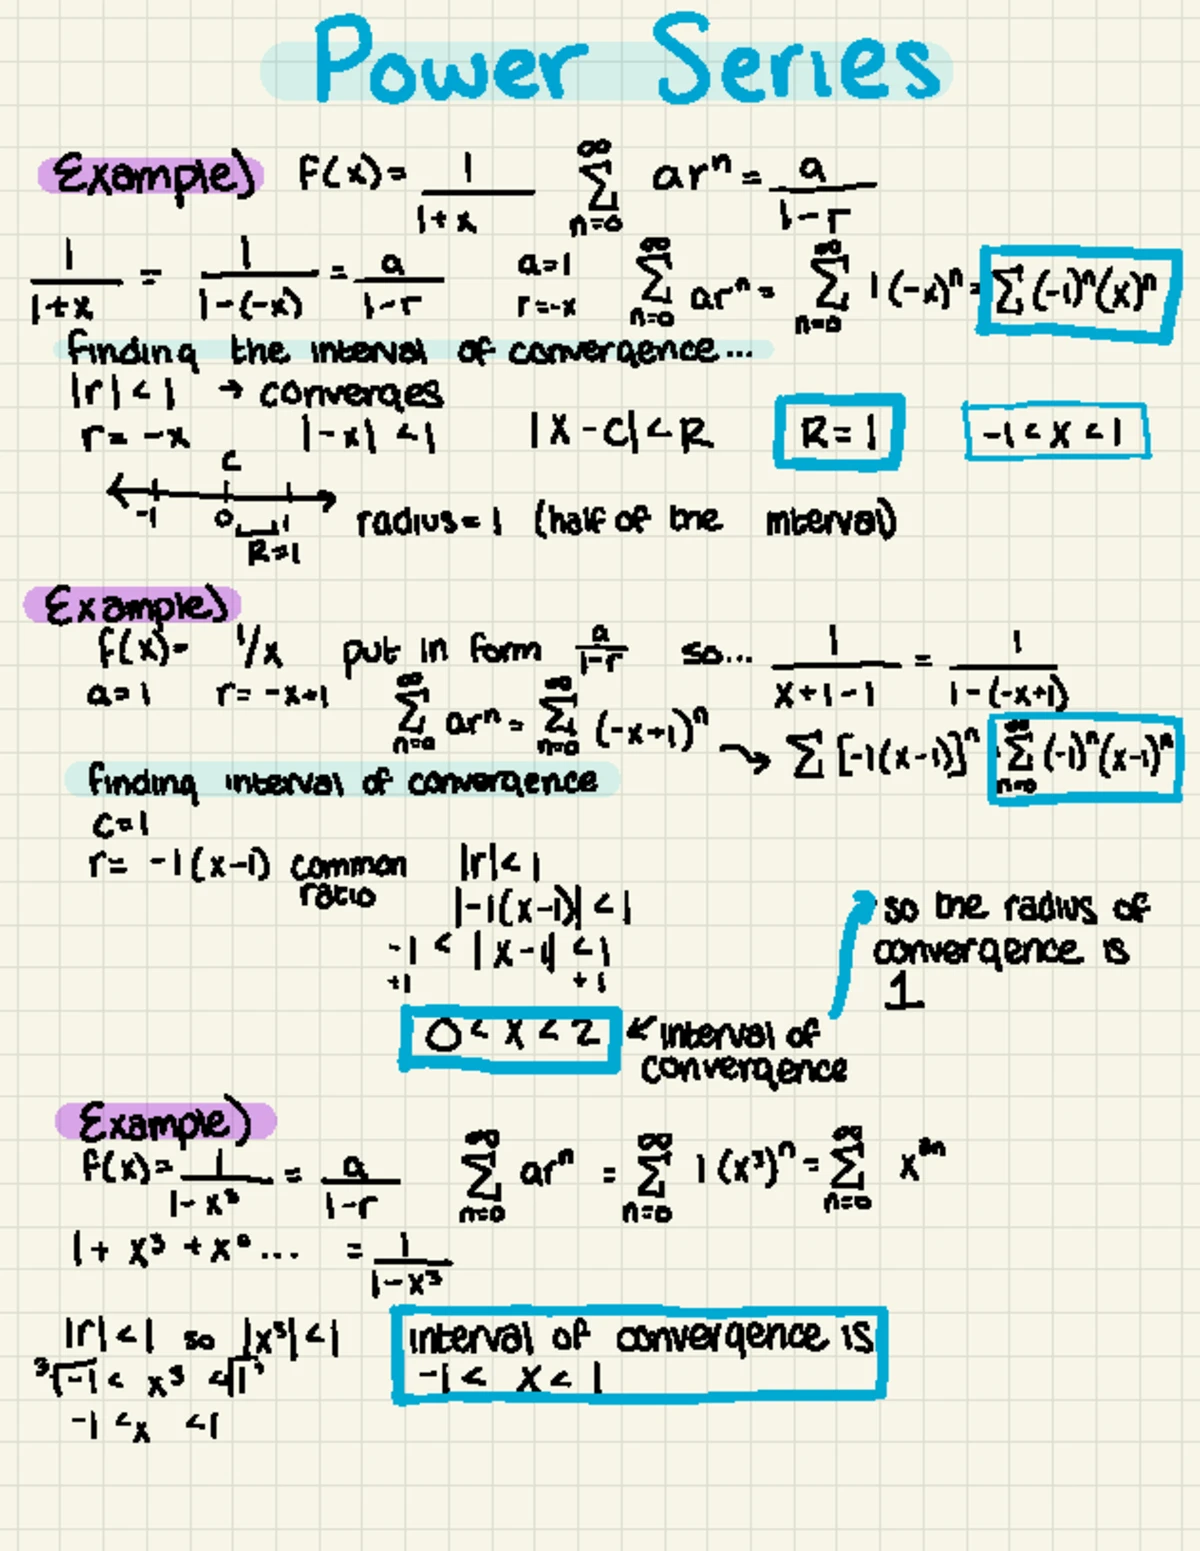 Power Series
Example) f(x) = 1/(1+x) ∞∑n=0 arⁿ = a/(1-r)
1/(1+x) = 1/(1-(-x)) = a/(1-r) a=1 r=-x ∞∑n=0 arⁿ = ∞∑n=0 1(-x)ⁿ = ∑(-1)ⁿ(x)ⁿ
finding the interval of convergence...
|r| < 1 → converges
r = -x |-x| < 1 |x-c| < R R = 1 -1 < x < 1
c
-1 0 1 radius = 1 (half of the interval)
R=1
Example)
f(x)= 1/x put in form a/(1-r) so... 1/(x+1-1) = 1/(1-(-x+1))
a=1 r= -x+1 ∞∑n=0 arⁿ = ∞∑n=0 (-x+1)ⁿ → ∑[-1(x-1)]ⁿ = ∞∑n=0 (-1)ⁿ(x-1)ⁿ
finding interval of convergence
c=1
r= -1(x-1) common ratio |r| < 1
|-1(x-1)| < 1
-1 < |x-1| < 1
+1 +1
so the radius of
convergence is
1
0 < x < 2 ← interval of
convergence
Example)
f(x) = 1/(1-x³) = a/(1-r) ∞∑n=0 arⁿ = ∞∑n=0 1(x³)ⁿ = ∞∑n=0 x³ⁿ
1 + x³ + x⁶... = 1/(1-x³)
|r| < 1 so |x³| < 1
³√-1 < x³ < √1
-1 < x < 1
interval of convergence is
-1 < x < 1